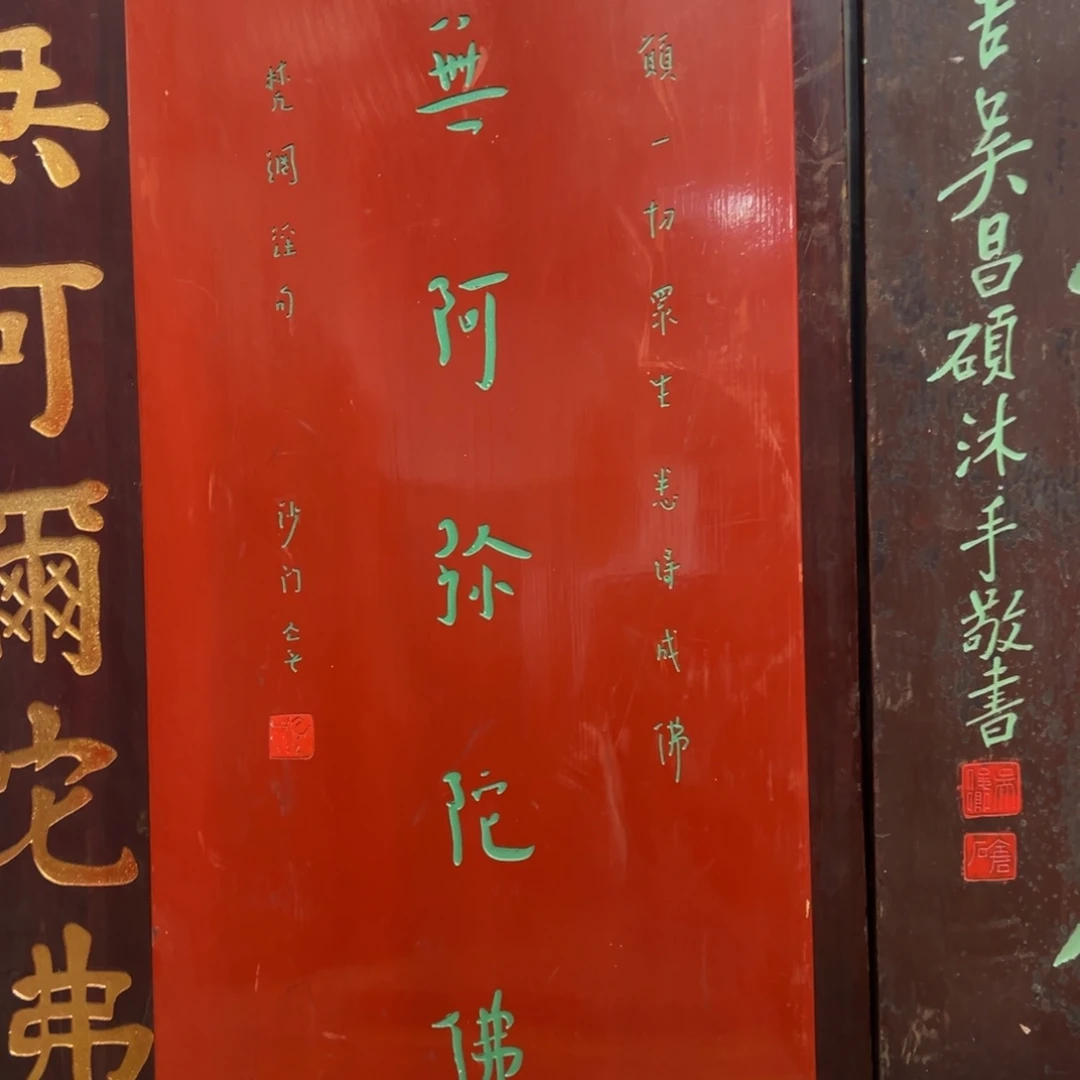 吉吳昌碩沐手敬書
願一切眾生悉得成佛
無阿弥陀佛
梵網經句 沙门
無阿彌陀佛